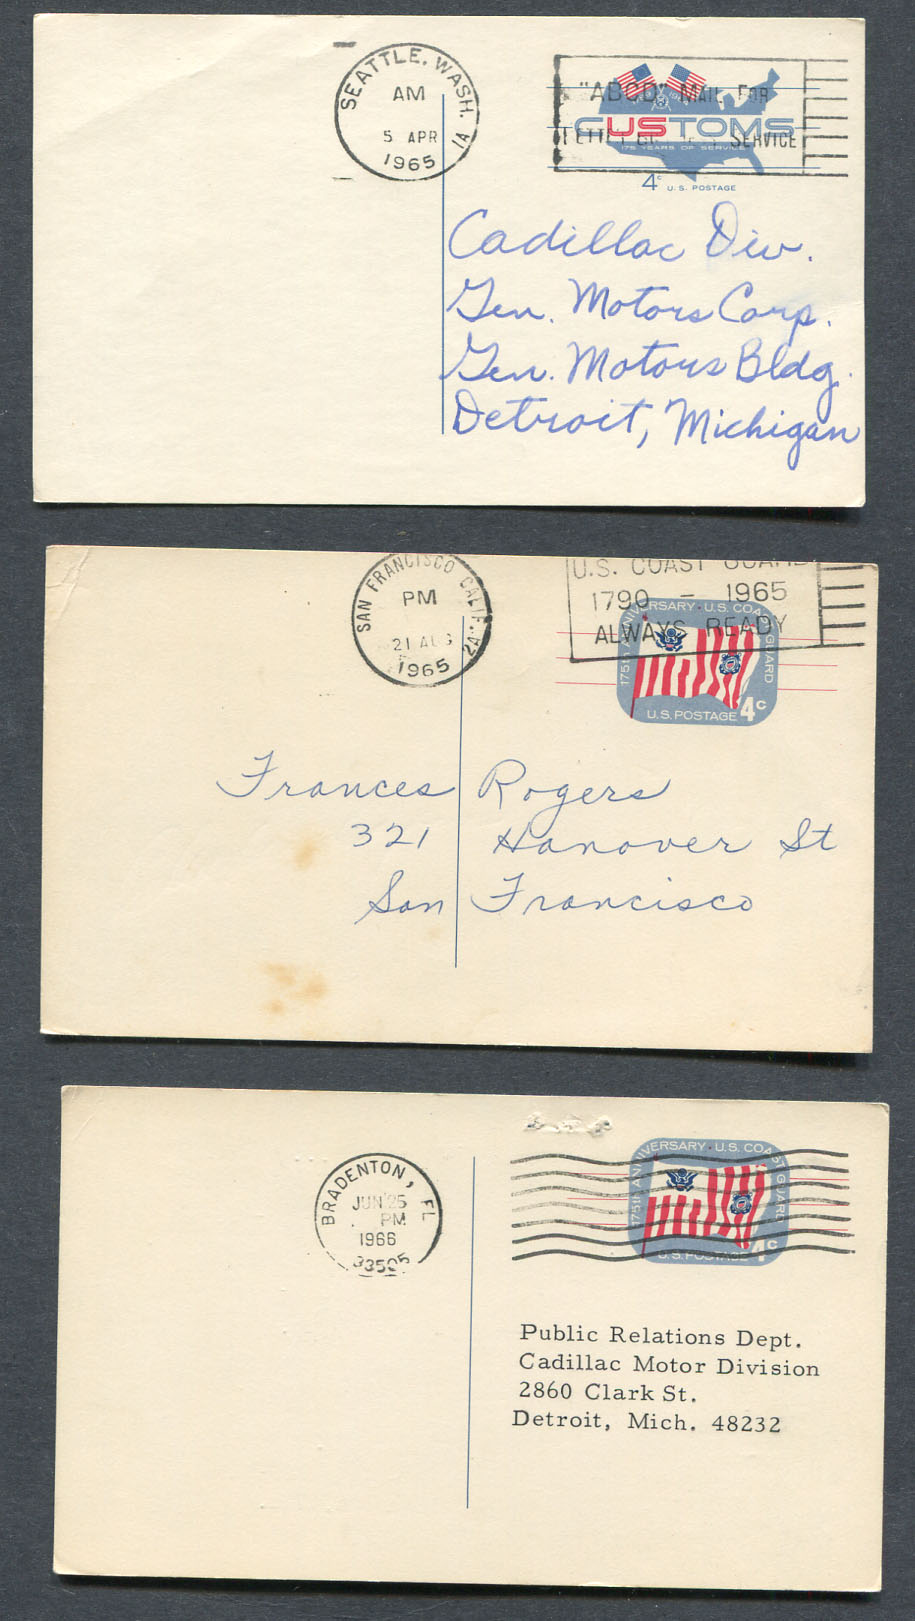 SEATTLE, WASH. 1A
AM
5 APR
1965
"ABCD" MAIL FOR
SERVICE
CUSTOMS
175 YEARS OF SERVICE
4c U.S. POSTAGE
Cadillac Div.
Gen. Motors Corp.
Gen. Motors Bldg.
Detroit, Michigan
SAN FRANCISCO CALIF. 2A
PM
21 AUG
1965
U.S. COAST GUARD
1790 - 1965
ALWAYS READY
175th ANNIVERSARY · U.S. COAST GUARD
U.S. POSTAGE 4c
Frances Rogers
321 Hanover St
San Francisco
BRADENTON, FL
JUN 25
PM
1966
33505
175th ANNIVERSARY · U.S. COAST GUARD
U.S. POSTAGE 4c
Public Relations Dept.
Cadillac Motor Division
2860 Clark St.
Detroit, Mich. 48232